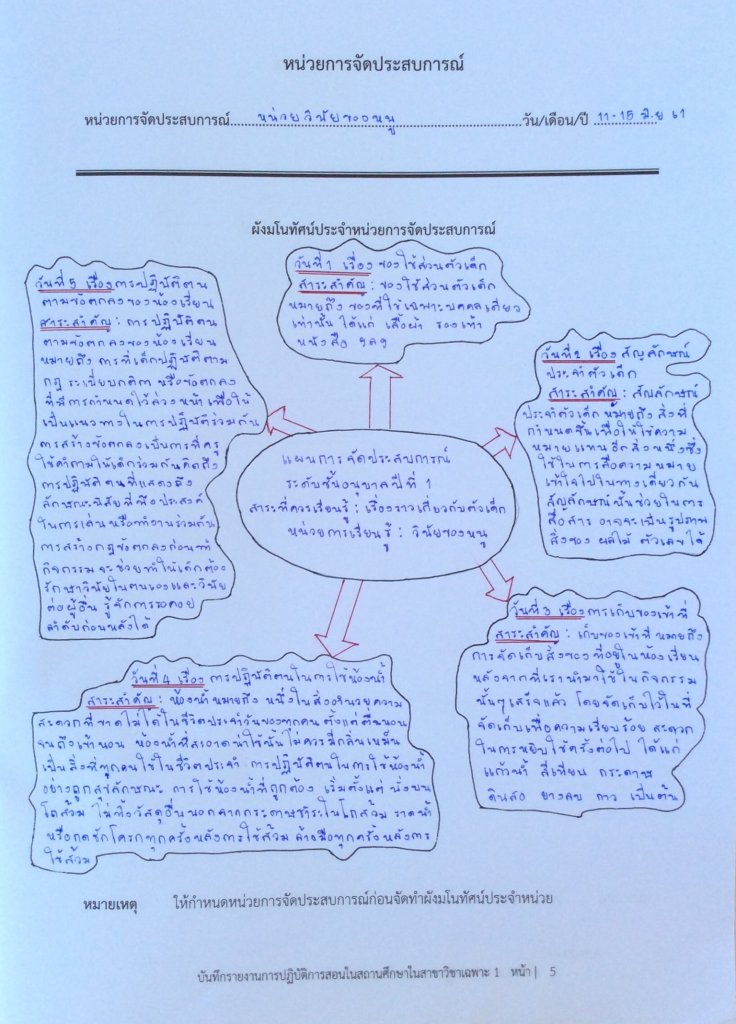 หน่วยการจัดประสบการณ์
หน่วยการจัดประสบการณ์.....หน่วยวินัยของหนู.....วัน/เดือน/ปี ..11-15 มิ.ย 61
ผังมโนทัศน์ประจำหน่วยการจัดประสบการณ์
วันที่ 1 เรื่อง ของใช้ส่วนตัวเด็ก
สาระสำคัญ : ของใช้ส่วนตัวเด็ก
หมายถึง ของที่ใช้เฉพาะบุคคลเดียว
เท่านั้น ได้แก่ เสื้อผ้า รองเท้า
หนังสือ ฯลฯ
วันที่ 2 เรื่อง สัญลักษณ์
ประจำตัวเด็ก
สาระสำคัญ : สัญลักษณ์
ประจำตัวเด็ก หมายถึง สิ่งที่
กำหนดขึ้นเพื่อให้ใช้ความ
หมายแทนอีกสิ่งหนึ่งซึ่ง
ใช้ในการสื่อความหมาย
เข้าใจไปในทางเดียวกัน
สัญลักษณ์นั้นช่วยในการ
สื่อสาร อาจจะเป็นรูปภาพ
สิ่งของ ผลไม้ ตัวเลขได้
แผนการจัดประสบการณ์
ระดับชั้นอนุบาลปีที่ 1
สาระที่ควรเรียนรู้ : เรื่องราวเกี่ยวกับตัวเด็ก
หน่วยการเรียนรู้ : วินัยของหนู
วันที่ 3 เรื่อง การเก็บของเข้าที่
สาระสำคัญ : เก็บของเข้าที่ หมายถึง
การจัดเก็บสิ่งของที่อยู่ในห้องเรียน
หลังจากที่เรานำมาใช้ในกิจกรรม
นั้นๆเสร็จแล้ว โดยจัดเก็บไว้ในที่
จัดเก็บเพื่อความเรียบร้อย สะดวก
ในการหยิบใช้ครั้งต่อไป ได้แก่
แก้วน้ำ สีเทียน กระดาษ
ดินสอ ยางลบ กาว เป็นต้น
วันที่ 4 เรื่อง การปฏิบัติตนในการใช้ห้องน้ำ
สาระสำคัญ : ห้องน้ำหมายถึง หนึ่งในสิ่งอำนวยความ
สะดวกที่ขาดไม่ได้ในชีวิตประจำวันของทุกคน ตั้งแต่ตื่นนอน
จนถึงเข้านอน ห้องน้ำที่สะอาดน่าใช้นั้นไม่ควรมีกลิ่นเหม็น
เป็นสิ่งที่ทุกคนใช้ในชีวิตประจำ การปฏิบัติตนในการใช้ห้องน้ำ
อย่างถูกสุขลักษณะ การใช้ห้องน้ำที่ถูกต้อง เริ่มตั้งแต่ นั่งบน
โถส้วม ไม่ทิ้งวัสดุอื่นนอกจากกระดาษชำระในโถส้วม ราดน้ำ
หรือกดชักโครกทุกครั้งหลังการใช้ส้วม ล้างมือทุกครั้งหลังการ
ใช้ส้วม
วันที่ 5 เรื่อง การปฏิบัติตน
ตามข้อตกลงของห้องเรียน
สาระสำคัญ : การปฏิบัติตน
ตามข้อตกลงของห้องเรียน
หมายถึง การที่เด็กปฏิบัติตาม
กฎ ระเบียบกติกา หรือข้อตกลง
ที่มีการกำหนดไว้ล่วงหน้า เพื่อให้
เป็นแนวทางในการปฏิบัติร่วมกัน
การสร้างข้อตกลงเป็นการที่ครู
ใช้คำถามให้เด็กร่วมกันคิดถึง
การปฏิบัติตนที่แสดงถึง
ลักษณะนิสัยที่พึงประสงค์
ในการเล่นหรือทำงานร่วมกัน
การสร้างกฎข้อตกลงก่อนทำ
กิจกรรม จะช่วยทำให้เด็กต้อง
รักษาวินัยในตนเองและวินัย
ต่อผู้อื่น รู้จักการรอคอย
ลำดับก่อนหลังได้
หมายเหตุ ให้กำหนดหน่วยการจัดประสบการณ์ก่อนจัดทำผังมโนทัศน์ประจำหน่วย
บันทึกรายงานการปฏิบัติการสอนในสถานศึกษาในสาขาวิชาเฉพาะ 1 หน้า | 5